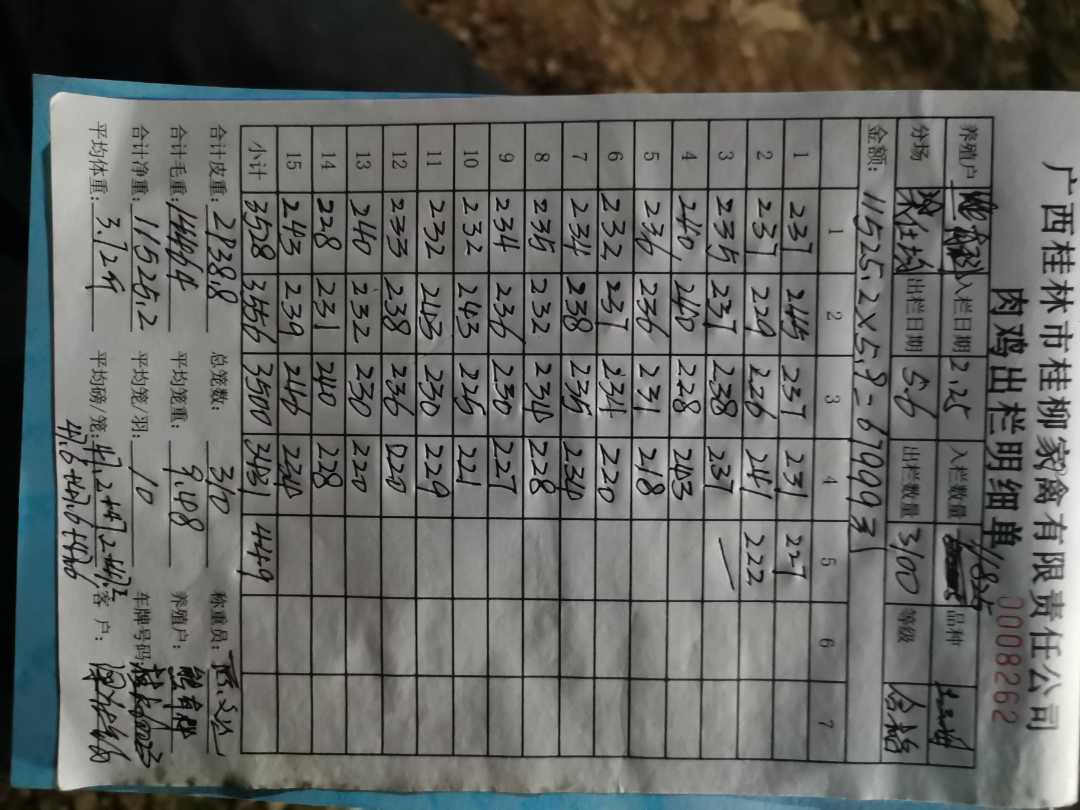 广西桂林市桂柳家禽有限责任公司
肉鸡出栏明细单 0008262
养殖户 入栏日期 2.25 入栏数量 品种
分场 出栏日期 5.6 出栏数量 3100 等级 合格
金额: 11525.2×5.9=67999元
1 2 3 4 5 6 7
1 237 245 237 231 227
2 237 229 226 241 222
3 235 237 238 237 —
4 240 240 228 203
5 236 236 231 218
6 232 237 234 220
7 234 238 235 234
8 235 232 234 228
9 234 236 230 227
10 232 243 225 221
11 232 243 230 229
12 233 238 236 220
13 240 232 230 220
14 228 231 240 228
15 243 239 246 224
小计 3528 3556 3500 3481 449
合计皮重: 2938.8 总笼数: 310 称重员:
合计毛重: 14464 平均笼重: 9.48 养殖户:
合计净重: 11525.2 平均笼/羽: 10 车牌号码:
平均体重: 3.72斤 平均磅/笼: 47.2+47.2+47.2 客户:
47.6+47.6+47.6